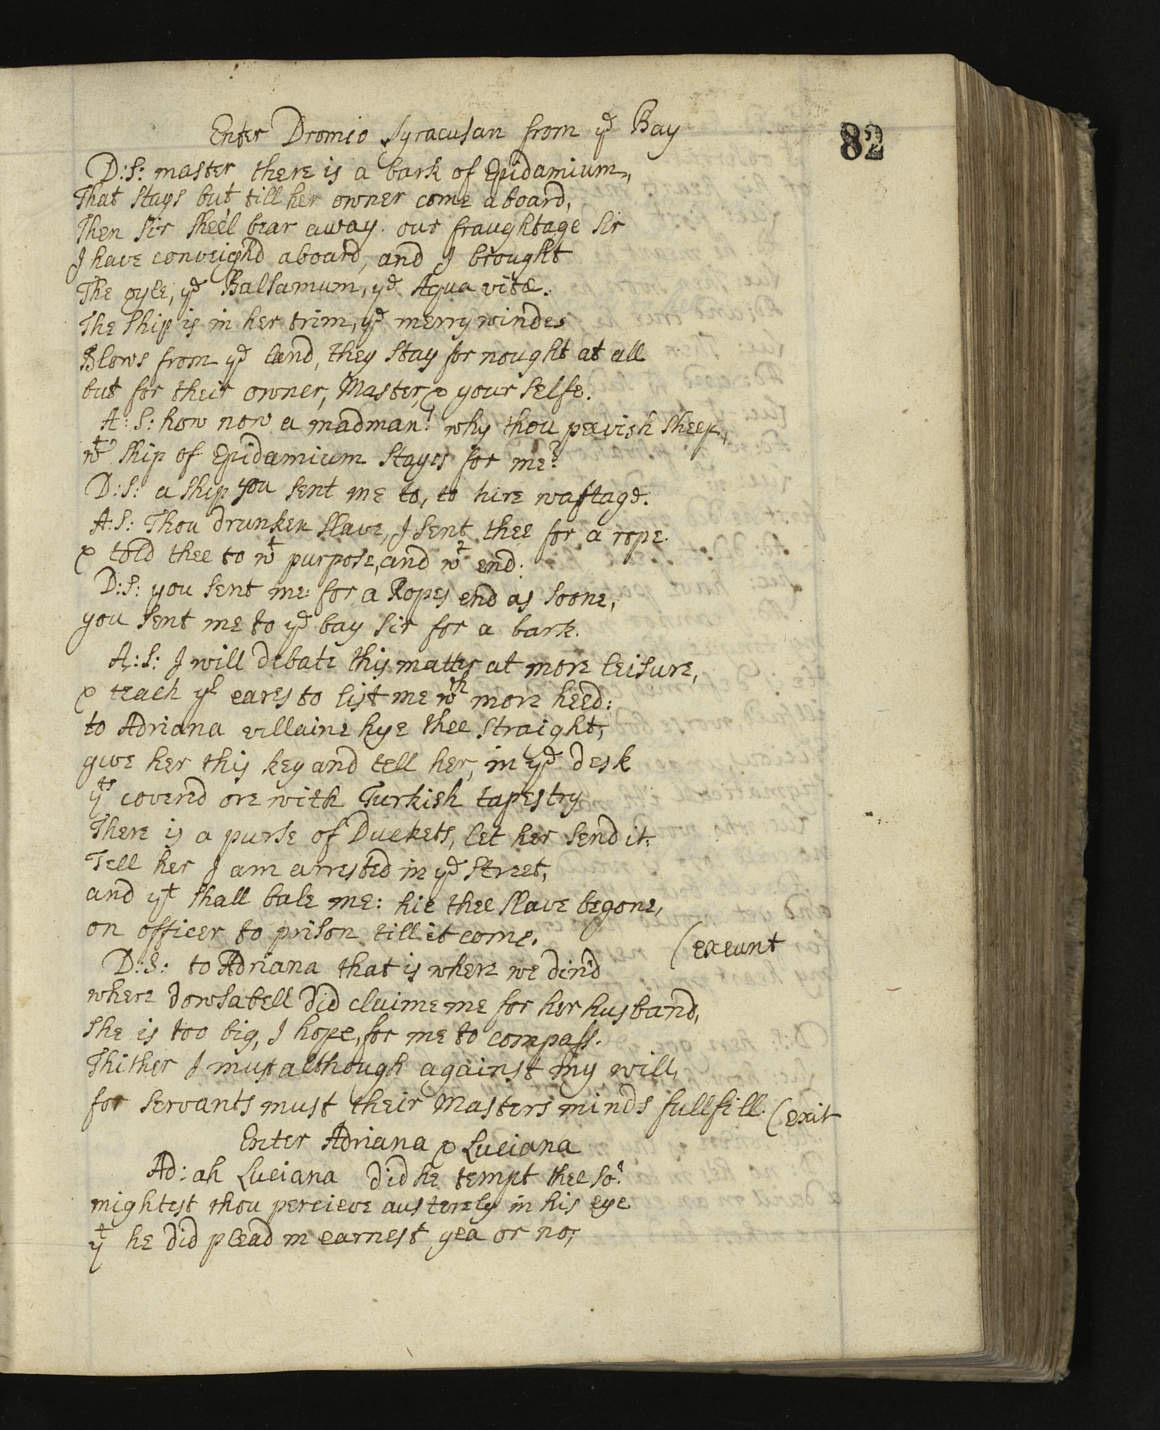 82
Enter Dromio Syracusan from yᵉ Bay
D:S: master there is a bark of Epidamium,
That stays but till her owner come aboard,
Then Sir shee'l bear away. our fraughtage Sir
I have conveighd aboard, and I brought
The oyle, yᵉ Balsamum, yᵉ Aqua vitæ.
The ship is in her trim, yᵉ merry winde
Blows from yᵉ land, they stay for nought at all
but for their owner, Master, & your selfe.
A:S: how now a madman! why thou peevish sheep,
wᵗ ship of Epidamium stayes for me?
D:S: a ship you sent me to, to hire waftage.
A:S: Thou drunken slave, I sent thee for a rope.
& told thee to wᵗ purpose, and wᵗ end.
D:S: you sent me for a Ropes end as soone,
you sent me to yᵉ bay sir for a bark.
A:S: I will debate this matter at more leisure,
& teach yʳ eares to list me wᵗʰ more heed:
to Adriana villaine hye thee straight,
give her this key and tell her, in yᵉ desk
yᵗˢ coverid ore with Turkish tapestry
There is a purse of Duckets, let her send it.
Tell her I am arrested in yᵉ street,
and yᵗ shall bale me: hie thee slave begone,
on officer to prison till it come. (exeunt
D:S: to Adriana that is where we din'd
where dowsabell did claime me for her husband,
she is too big, I hope, for me to compass.
Thither I must although against my will,
for servants must their Masters minds fullfill. (exit
Enter Adriana & Luciana
Ad: ah Luciana did he tempt thee so?
mightest thou percieve austerely in his eye
yᵗ he did plead in earnest yea or no,